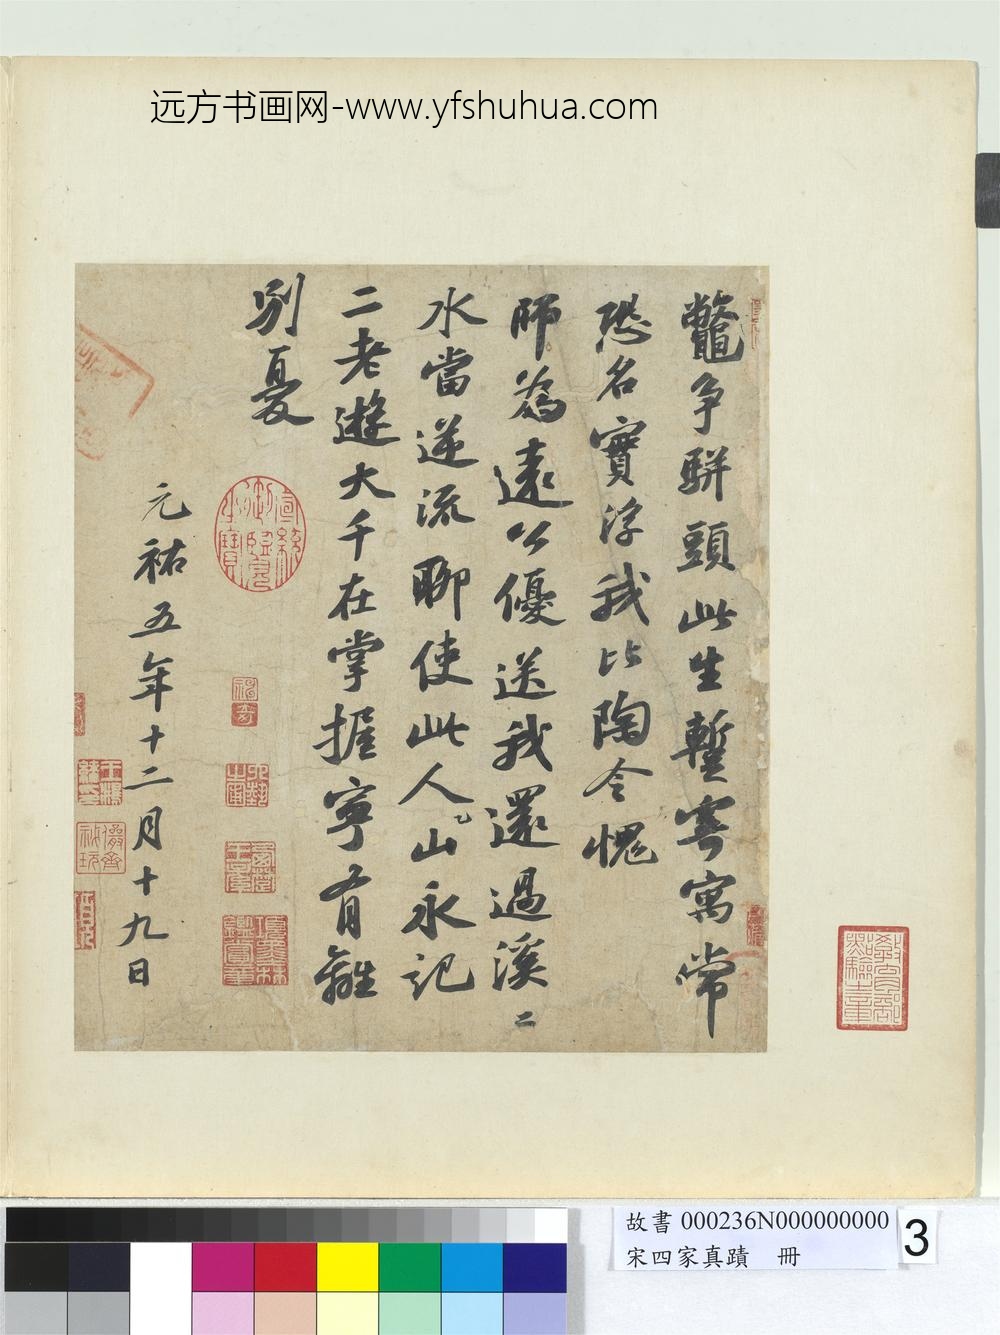 远方书画网-www.yfshuhua.com
龞争駢頭此生暫寄寓常
恐名實浮我比陶令愧
師為遠公優送我還過溪二
水當逆流聊使此人山永記
二老遊大千在掌握寧有離
別憂
元祐五年十二月十九日
宣統御覽之寶
教育部點驗之章
故書 000236N000000000
宋四家真蹟 冊
3